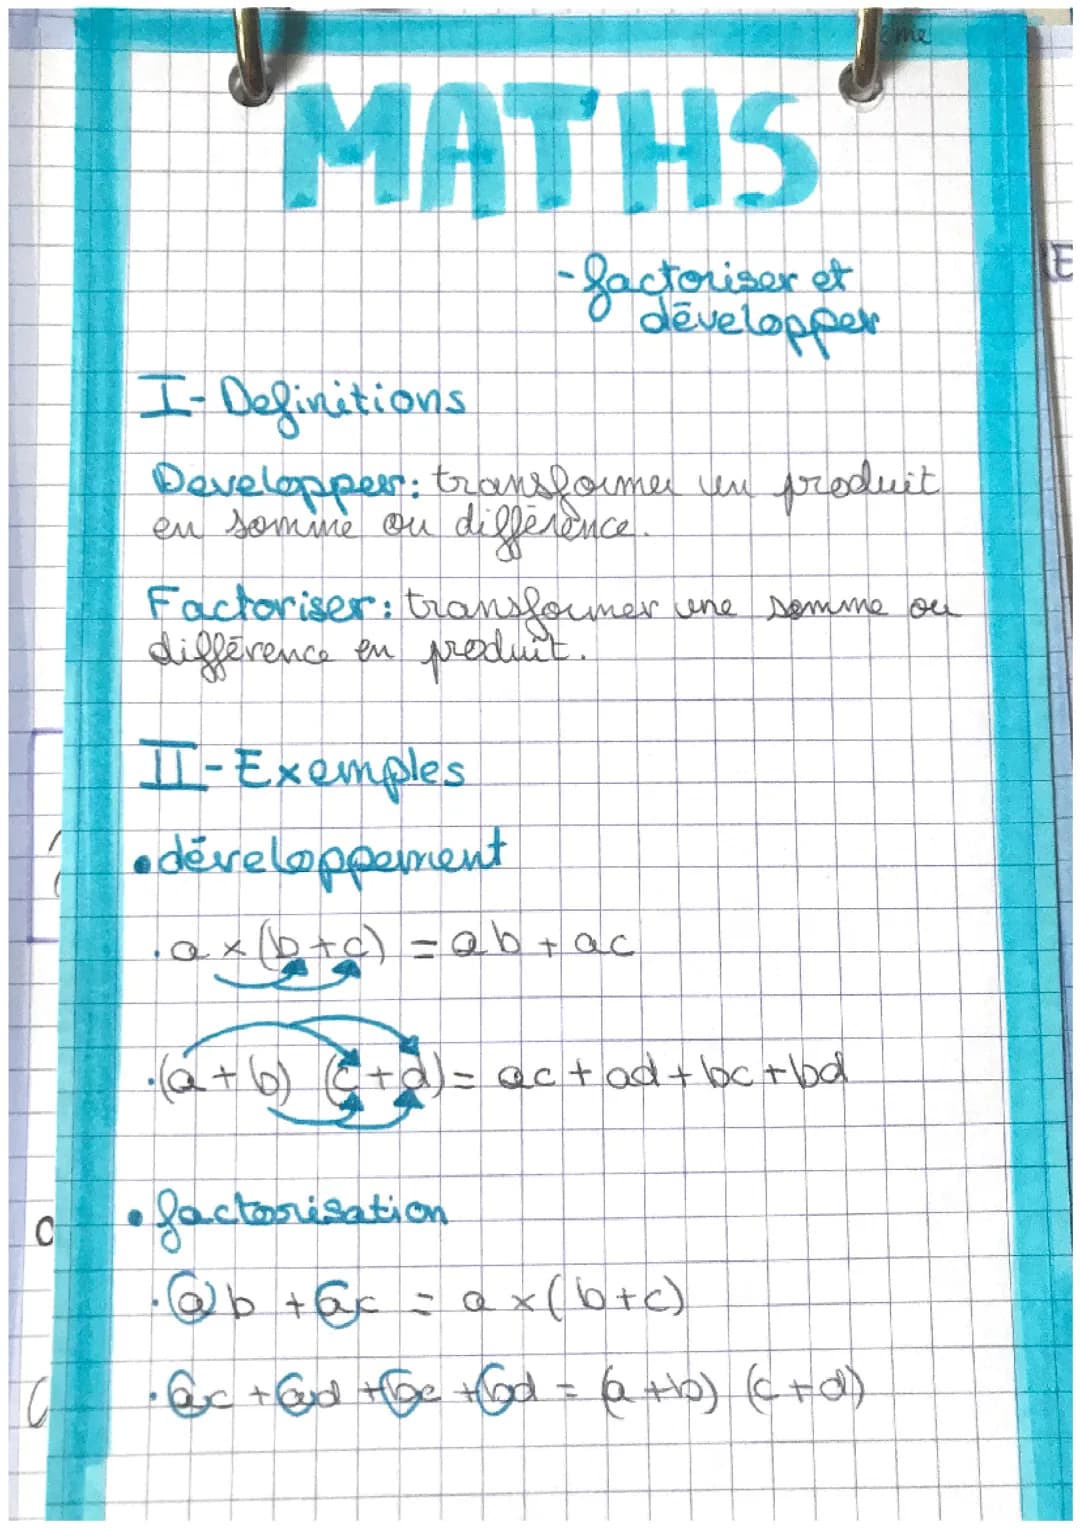 ème
MATHS
-factoriser et
développer
I- Definitions
Developper: transformer un produit
en somme ou différence.
Factoriser: transformer une somme ou
différence en produit.
II-Exemples
•développement
.a×(b+c) = ab + ac
.(a+b) (c+d)= ac + ad + bc + bd
• factorisation
.ab + ac = a ×(b+c)
.ac + ad + bc + bd = (a+b) (c+d)